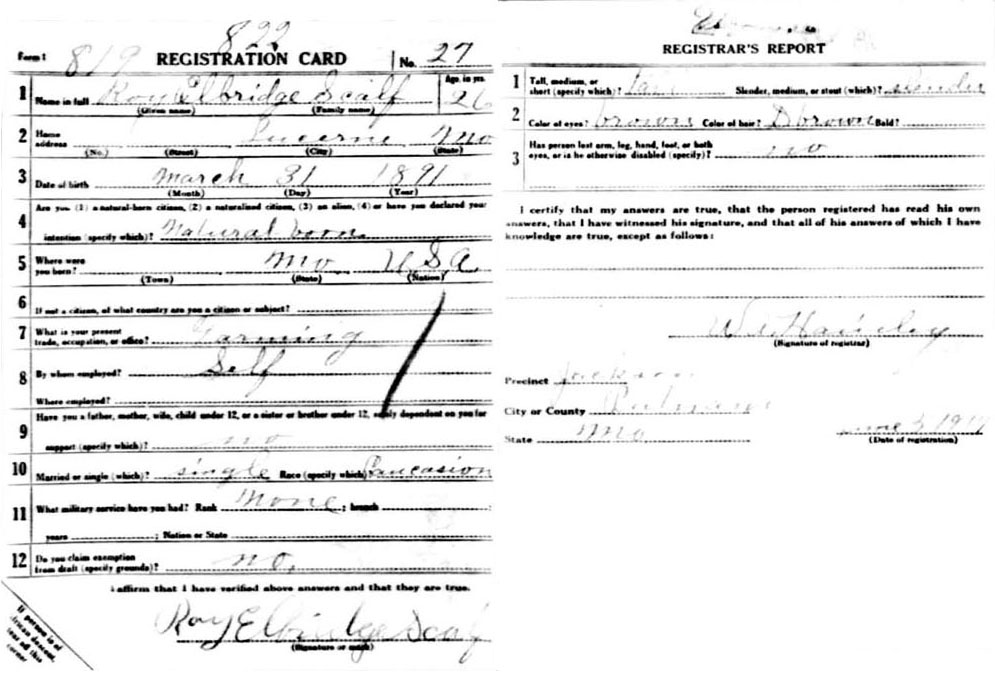 822
Form 1 819 REGISTRATION CARD No. 27
1 Name in full Roy Elbridge Scalf Age, in yrs. 26
(Given name) (Family name)
2 Home address Lucerne Mo
(No.) (Street) (City) (State)
3 Date of birth March 31 1891
(Month) (Day) (Year)
4 Are you (1) a natural-born citizen, (2) a naturalized citizen, (3) an alien, (4) or have you declared your
intention (specify which)? Natural born
5 Where were you born? Mo U.S.A.
(Town) (State) (Nation)
6 If not a citizen, of what country are you a citizen or subject?
7 What is your present trade, occupation, or office? Farming
8 By whom employed? Self
Where employed?
9 Have you a father, mother, wife, child under 12, or a sister or brother under 12, solely dependent on you for
support (specify which)? no
10 Married or single (which)? single Race (specify which)? Caucasion
11 What military service have you had? Rank None; branch
years; Nation or State
12 Do you claim exemption from draft (specify grounds)? no.
I affirm that I have verified above answers and that they are true.
Roy Elbridge Scalf
(Signature or mark)
If person is of
African descent,
tear off this
corner
REGISTRAR'S REPORT
1 Tall, medium, or short (specify which)? Tall Slender, medium, or stout (which)? slender
2 Color of eyes? brown Color of hair? D brown Bald?
3 Has person lost arm, leg, hand, foot, or both
eyes, or is he otherwise disabled (specify)? no
I certify that my answers are true, that the person registered has read his own
answers, that I have witnessed his signature, and that all of his answers of which I have
knowledge are true, except as follows:
(Signature of registrar)
Precinct Jackson
City or County Putnam
State Mo June 5, 1917
(Date of registration)